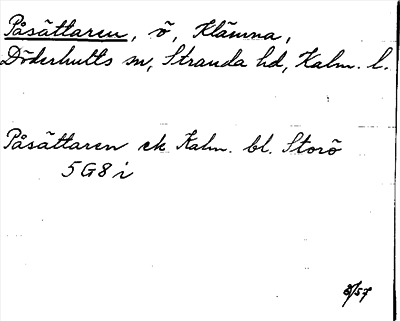 Påsättaren, ö, Klämna,
Döderhults sn, Stranda hd, Kalm. l.
Påsättaren ek Kalm. bl. Storö
5G8i
8/57